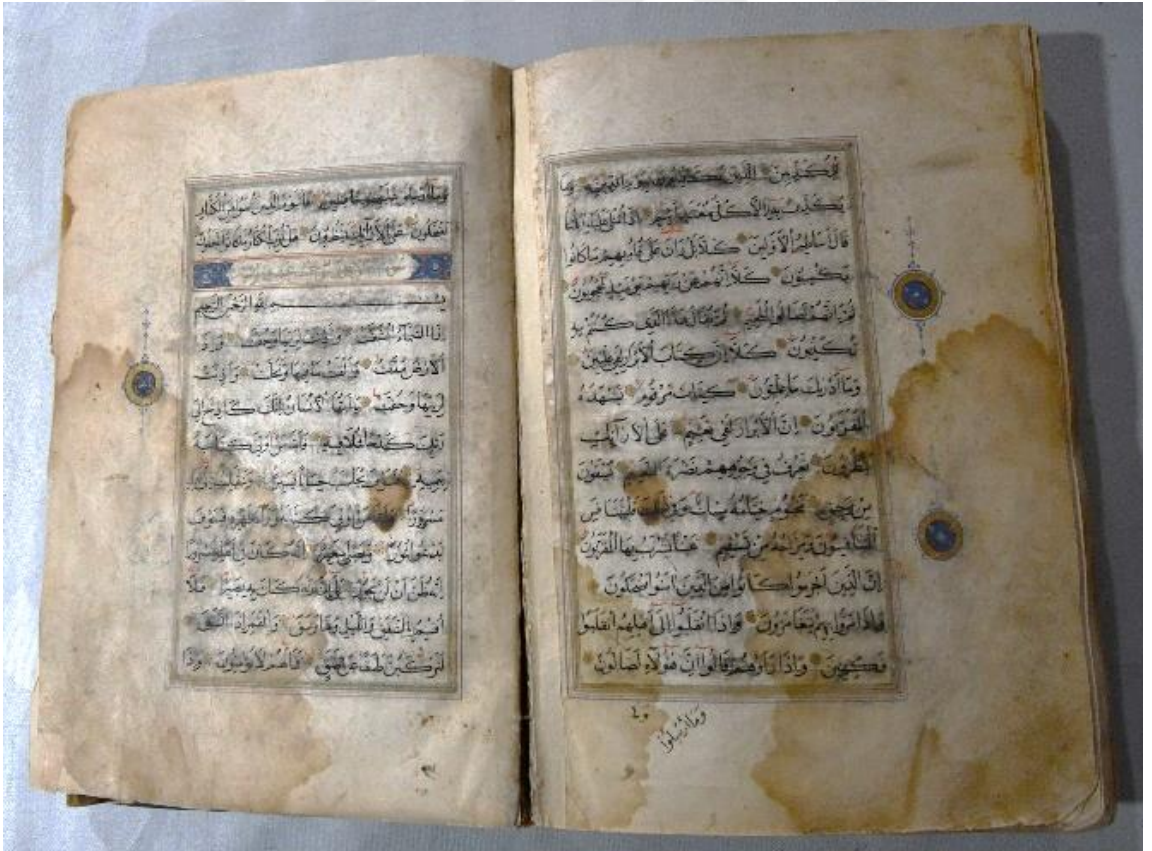 للمكذبين الذين يكذبون بيوم الدين وما
يكذب به الا كل معتد اثيم اذا تتلى عليه اياتنا
قال اساطير الاولين كلا بل ران على قلوبهم ما كانوا
يكسبون كلا انهم عن ربهم يومئذ لمحجوبون
ثم انهم لصالوا الجحيم ثم يقال هذا الذى كنتم به
تكذبون كلا ان كتاب الابرار لفى عليين
وما ادريك ما عليون كتاب مرقوم يشهده
المقربون ان الابرار لفى نعيم على الارائك
ينظرون تعرف فى وجوههم نضرة النعيم يسقون
من رحيق مختوم ختامه مسك وفى ذلك فليتنافس
المتنافسون ومزاجه من تسنيم عينا يشرب بها المقربون
ان الذين اجرموا كانوا من الذين امنوا يضحكون
واذا مروا بهم يتغامزون واذا انقلبوا الى اهلهم انقلبوا
فكهين واذا راوهم قالوا ان هؤلاء لضالون
وما ارسلوا
وما ارسلوا عليهم حافظين فاليوم الذين امنوا من الكفار
يضحكون على الارائك ينظرون هل ثوب الكفار ما كانوا يفعلون
بسم الله الرحمن الرحيم
اذا السماء انشقت واذنت لربها وحقت واذا
الارض مدت والقت ما فيها وتخلت واذنت
لربها وحقت يا ايها الانسان انك كادح الى
ربك كدحا فملاقيه فاما من اوتى كتابه
بيمينه يحاسب حسابا يسيرا وينقلب
مسرورا واما من اوتى كتابه وراء ظهره فسوف
يدعوا ثبورا ويصلى سعيرا انه كان فى اهله مسرورا
انه ظن ان لن يحور بلى ان ربه كان به بصيرا فلا
اقسم بالشفق والليل وما وسق والقمر اذا اتسق
لتركبن طبقا عن طبق فما لهم لا يؤمنون واذا